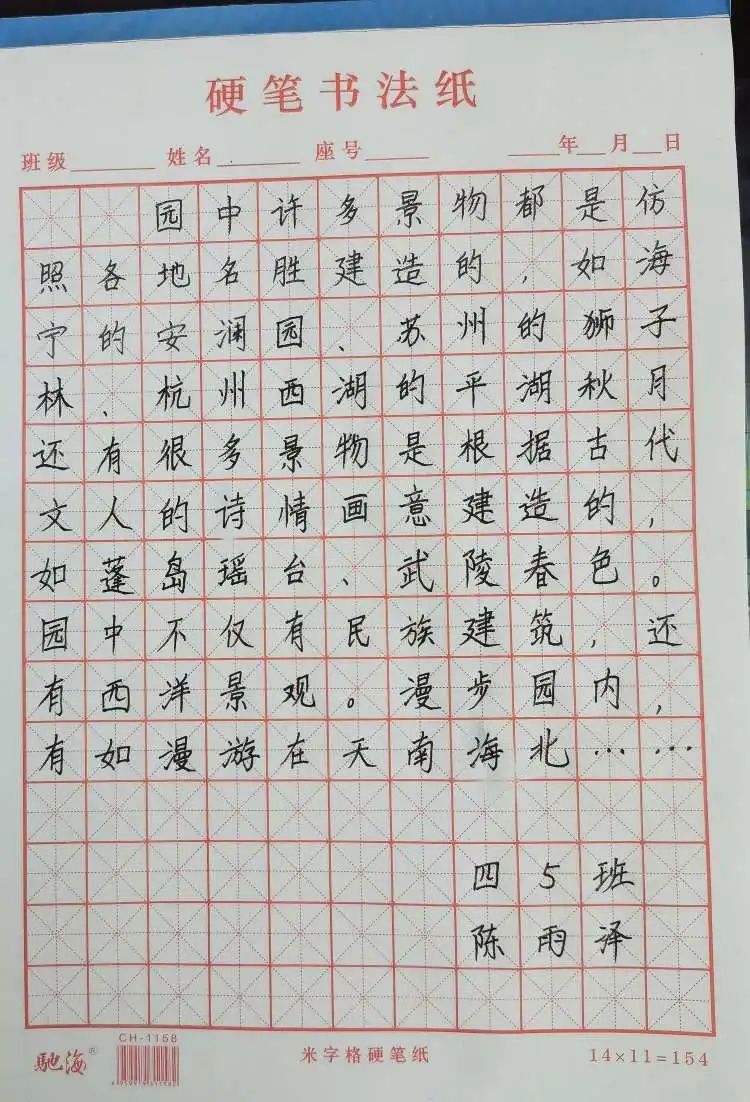 硬笔书法纸
班级 姓名 座号 年 月 日
园中许多景物都是仿
照各地名胜建造的，如海
宁的安澜园、苏州的狮子
林、杭州西湖的平湖秋月
还有很多景物是根据古代
文人的诗情画意建造的，
如蓬岛瑶台、武陵春色。
园中不仅有民族建筑，还
有西洋景观。漫步园内，
有如漫游在天南海北……
四5班
陈雨泽
馳海® CH-1158 米字格硬笔纸 14×11=154